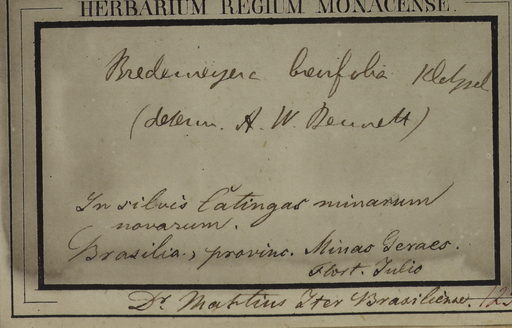 HERBARIUM REGIUM MONACENSE.
Bredemeyera brevifolia Klotzsch
(determ. A. W. Bennett)
In silvis Catingas minarum
novarum.
Brasilia, provinc. Minas Geraes.
Flort. Julio
Dr. Martius Iter Brasiliense.